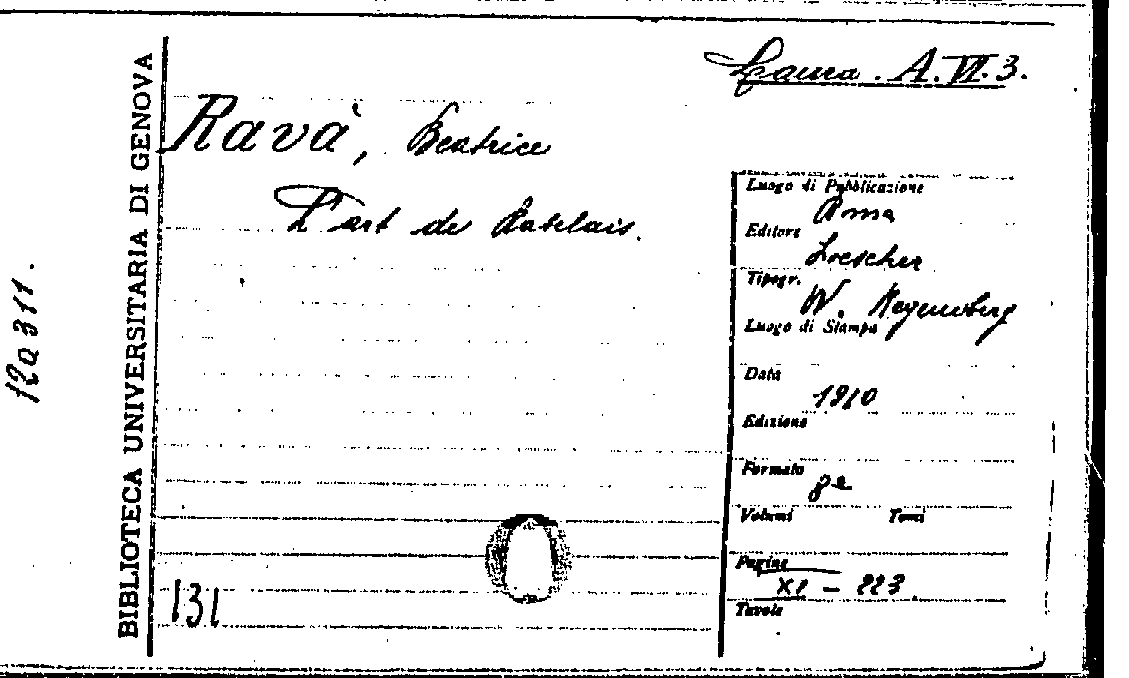 Laura. A. VI. 3.
Ravà, Beatrice
L'art de Rabelais.
BIBLIOTECA UNIVERSITARIA DI GENOVA
12a311.
131
Luogo di Pubblicazione
Roma
Editore
Loescher
Tipogr.
W.
Luogo di Stampa
Data
1910
Edizione
Formato
8º
Volumi Tomi
Pagine
XI - 223
Tavole